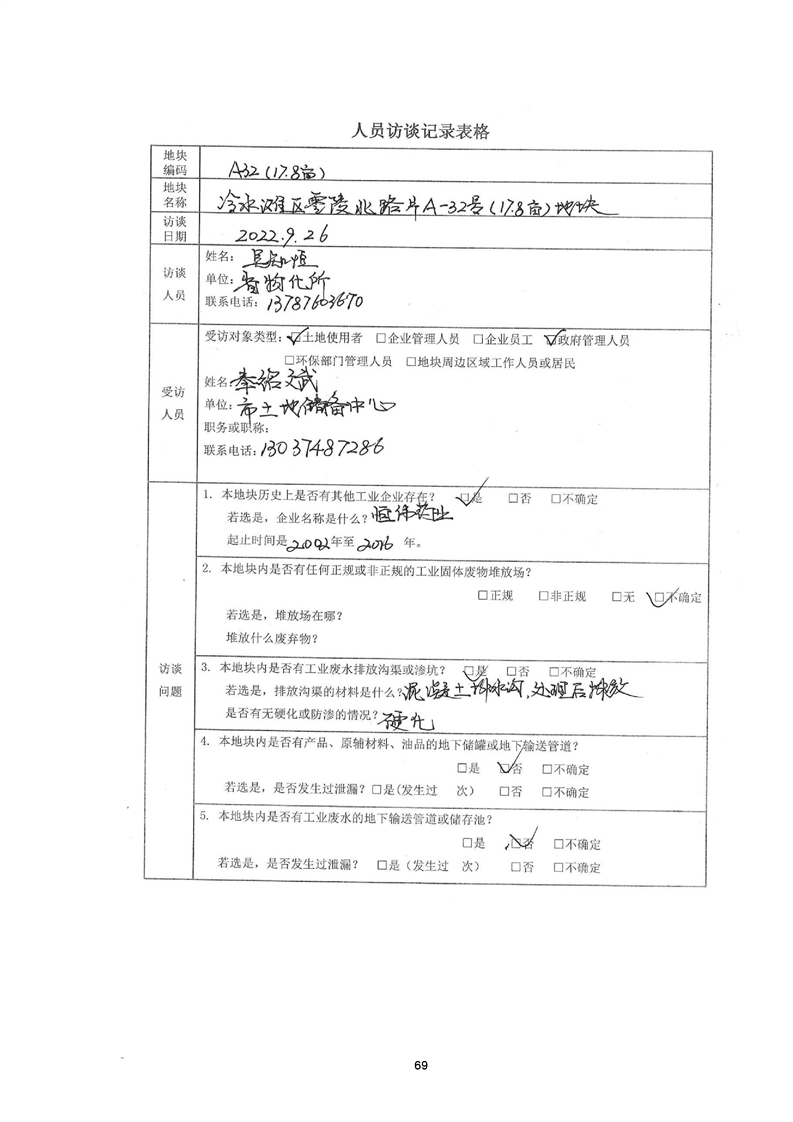 人员访谈记录表格
地块编码 A32(17.8亩)
地块名称 冷水滩区零陵北路片A-32号(17.8亩)地块
访谈日期 2022.9.26
访谈人员
姓名:
单位:省物化所
联系电话:13787603670
受访人员
受访对象类型:☑土地使用者 □企业管理人员 □企业员工 ☑政府管理人员
□环保部门管理人员 □地块周边区域工作人员或居民
姓名:
单位:市土地储备中心
职务或职称:
联系电话:13037487286
访谈问题
1. 本地块历史上是否有其他工业企业存在? ☑是 □否 □不确定
若选是,企业名称是什么?恒伟药业
起止时间是2002年至2016年。
2. 本地块内是否有任何正规或非正规的工业固体废物堆放场?
□正规 □非正规 □无 ☑不确定
若选是,堆放场在哪?
堆放什么废弃物?
3. 本地块内是否有工业废水排放沟渠或渗坑? ☑是 □否 □不确定
若选是,排放沟渠的材料是什么?混凝土排水沟,处理后排放
是否有无硬化或防渗的情况?硬化
4. 本地块内是否有产品、原辅材料、油品的地下储罐或地下输送管道?
□是 ☑否 □不确定
若选是,是否发生过泄漏?□是(发生过 次) □否 □不确定
5. 本地块内是否有工业废水的地下输送管道或储存池?
□是 ☑否 □不确定
若选是,是否发生过泄漏? □是(发生过 次) □否 □不确定
69